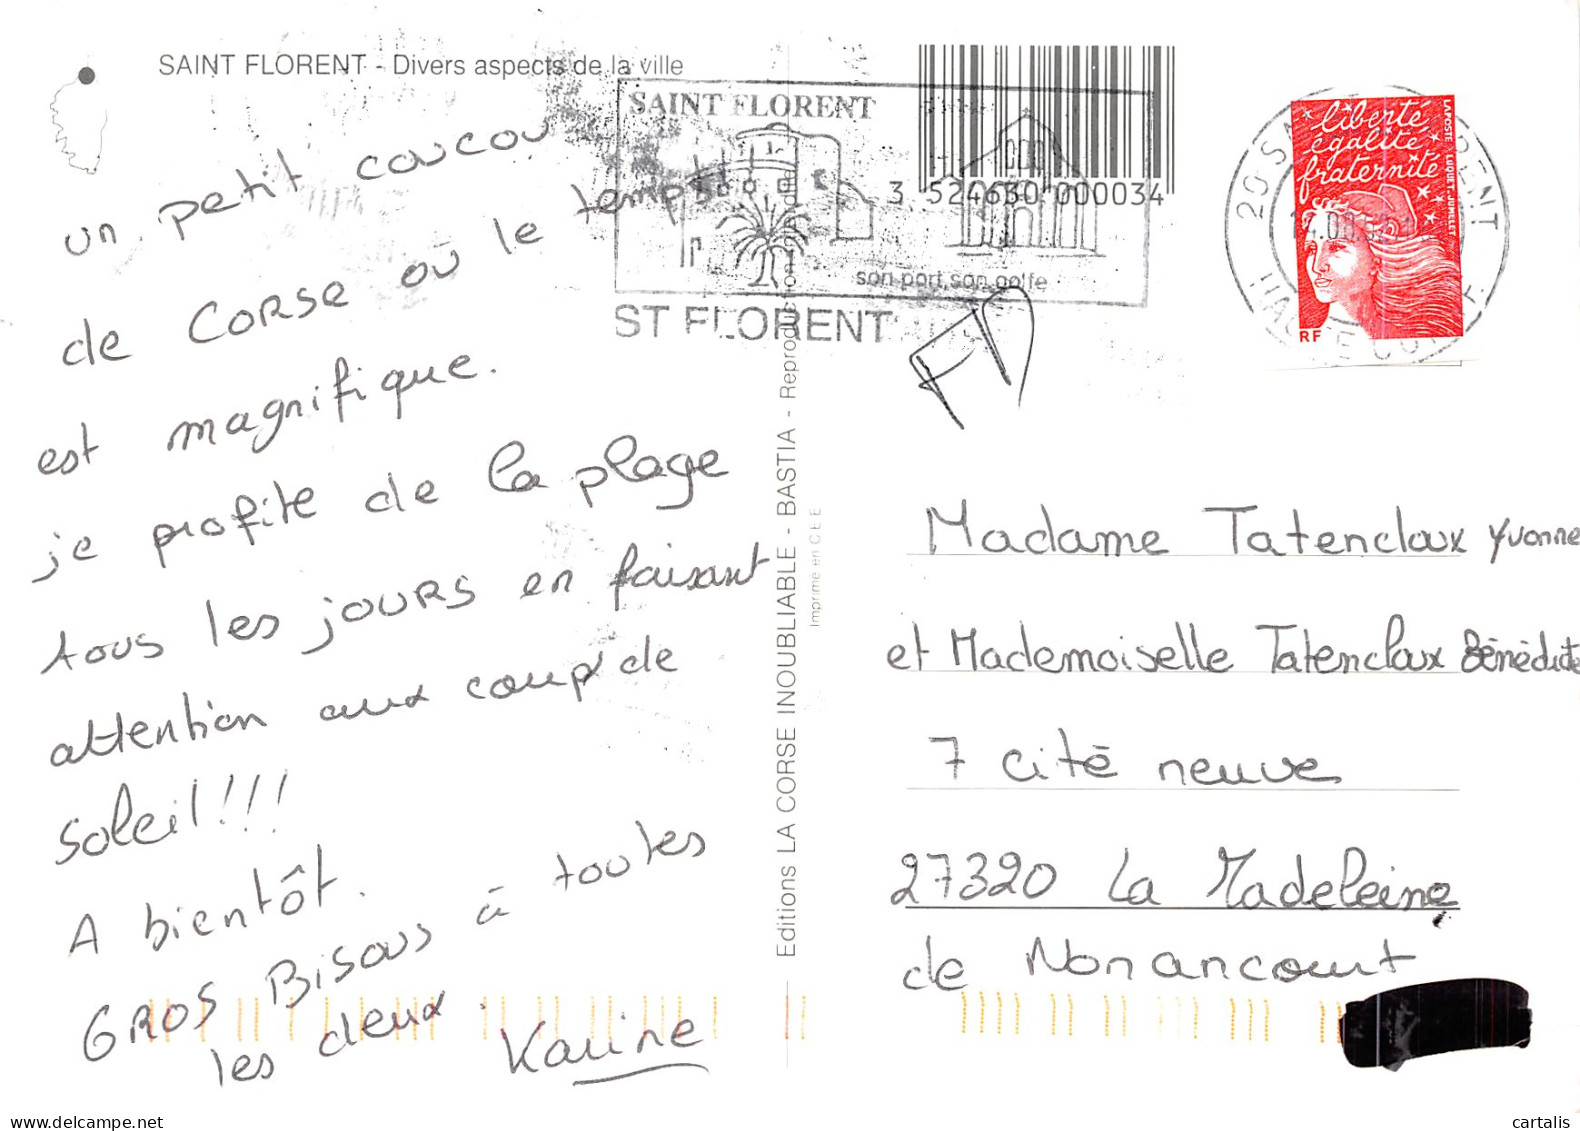 SAINT FLORENT - Divers aspects de la ville
un petit coucou
de CORSE où le temps
est magnifique.
je profite de la plage
tous les jours en faisant
attention aux coup de
soleil!!!
A bientôt.
GROS Bisous à toutes
les deux.
Karine
SAINT FLORENT
son port, son golfe
ST FLORENT
3 524650 000034
Editions LA CORSE INOUBLIABLE - BASTIA - Reproduction
Imprimé en C.E.E
liberté
égalité
fraternité
LA POSTE LUQUET-JUMELET
RF
20 S RENT
HAUTE CORSE
Madame Tatenclaux Yvonne
et Mademoiselle Tatenclaux Bénédicte
7 cité neuve
27320 La Madeleine
de Nonancourt
cartalis
www.delcampe.net